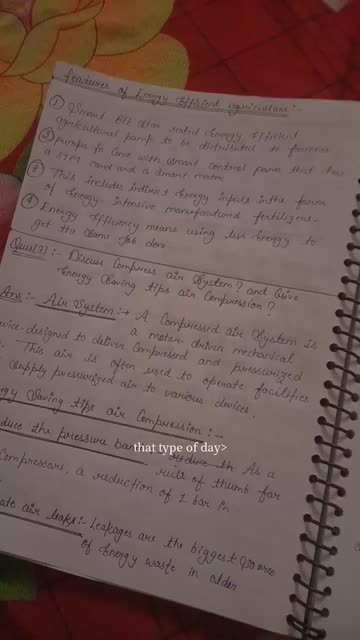 Features of Energy Efficient agriculture:-
① Smart BEE star rated Energy Efficient
agricultural pump to be distributed to farmers
② pumps to come with smart control panel that has
a SIM card and a smart meter
③ This includes indirect Energy inputs in the form
of Energy-intensive manufactured fertilizers
④ Energy Efficiency means using less Energy to
get the same job done.
Ques(3):- Discuss Compress air System? and Give
Energy Saving tips air Compression?
Ans:- Air System:→ A Compressed air System is
a motor driven mechanical
vice designed to deliver compressed and pressurized
This air is often used to operate facilities
supply pressurized air to various devices.
gy Saving tips air Compression:-
duce the pressure bar As a
that type of day>
rule of thumb for
Compressors, a reduction of 1 bar in
ate air leaks:- Leakages are the biggest
of Energy waste in older